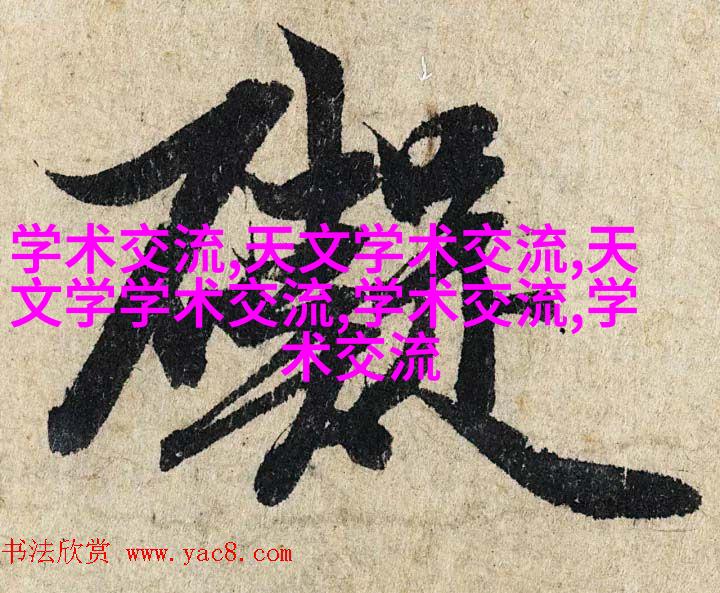 礙
学术交流,天文学术交流,天
文学学术交流,学术交流,学
术交流
书法欣赏 www.yac8.com